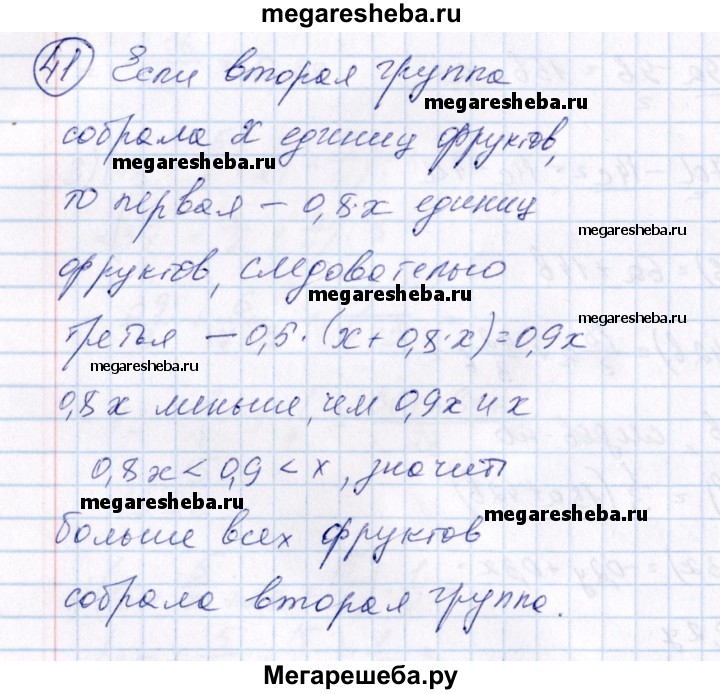 megaresheba.ru
41 Если вторая группа
megaresheba.ru
собрала x единиц фруктов,
megaresheba.ru
megaresheba.ru
то первая – 0,8·x единиц
megaresheba.ru
фруктов, следовательно
megaresheba.ru
megaresheba.ru
третья – 0,5·(x+0,8·x)=0,9x
megaresheba.ru
megaresheba.ru
0,8x меньше, чем 0,9x и x
0,8x < 0,9 < x, значит
megaresheba.ru
megaresheba.ru
больше всех фруктов
собрала вторая группа.
megaresheba.ru
megaresheba.ru
Мегарешеба.ру